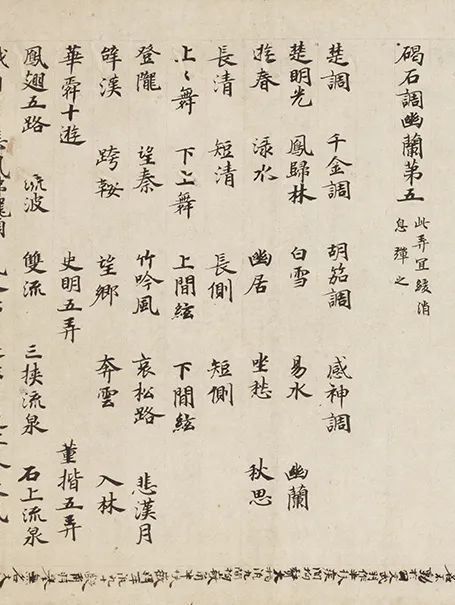 碣石調幽蘭第五
此弄宜緩消
息彈之
楚調 千金調 胡笳調 感神調
楚明光 鳳歸林 白雪 易水 幽蘭
遊春 淥水 幽居 坐愁 秋思
長清 短清 長側 短側
上〻舞 下上舞 上間絃 下間絃
登隴 望秦 竹吟風 哀松路 悲漢月
辭漢 跨鞍 望鄉 奔雲 入林
華舜十遊 史明五弄 董揩五弄
鳳翅五路 流波 雙流 三挾流泉 石上流泉